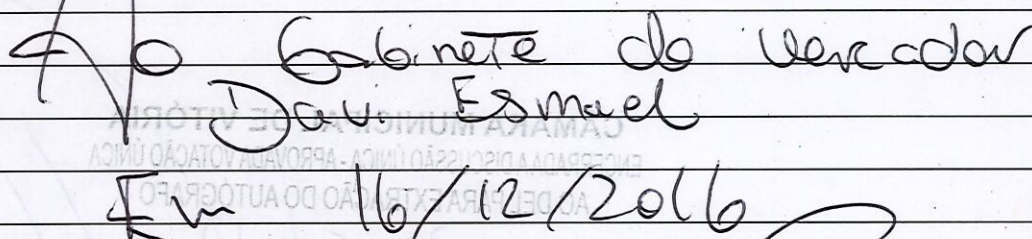 Ao Gabinete do Vereador
Davi Esmael
CÂMARA MUNICIPAL DE VITÓRIA
ENCERRADA A DISCUSSÃO ÚNICA - APROVADA VOTAÇÃO ÚNICA
AO DEL PARA EXTRAÇÃO DO AUTÓGRAFO
Em 16/12/2016